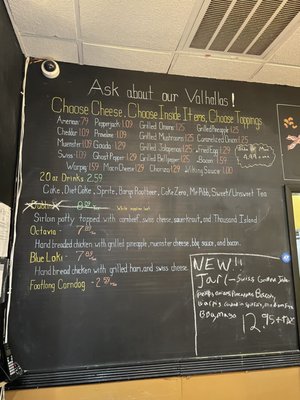 Ask about our Valhallas!
Choose Cheese, Choose Inside Items, Choose Toppings
American .79 Pepperjack 1.09 Grilled Onions Grilled Pineapple 1.25
Cheddar 1.09 Provolone 1.09 Grilled Mushroom 1.25 Caramelized Onion 1.25
Muenster 1.09 Gouda 1.29 Grilled Jalapenos 1.25 Fried Egg 1.50
Swiss 1.09 Ghost Pepper 1.29 Grilled Bell pepper 1.25 Bacon 1.59
Warpig 1.59 Mac n Cheese 1.29 Chorizo 1.29 Wilking Sauce 1.00
20 oz Drinks 2.59
Coke, Diet Coke, Sprite, Barqs Rootbeer, Coke Zero, Mr. Pibb, Sweet/Unsweet Tea
Sirloin patty topped with cornbeef, swiss cheese, sauerkraut, and Thousand Island
Octavia - 7
Hand breaded chicken with grilled pineapple, muenster cheese, bbq sauce, and bacon.
Blue Loki - 7
Hand bread chicken with grilled ham, and swiss cheese
Footlong Corndog - 2
NEW!!
Jarl - Swiss Gouda
Bacon,
BBQ, mayo
12.95 + tax